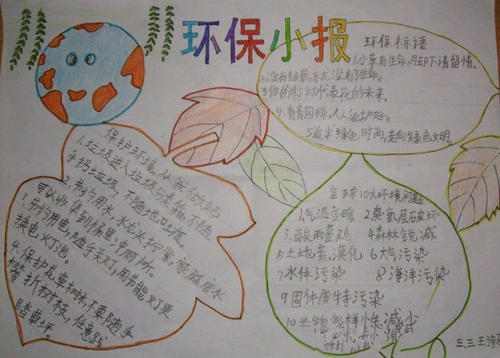 环保小报
环保标语
1.小草有生命,足下请留情。
2.没有绿色,就没有生命。
3.你的
的未来。
4.青青园地,人人爱护好。
5.追求绿色时尚,走向绿色文明。
保护环境从我做起
1.垃圾进入垃圾分类桶,不随
手扔垃圾,不随地吐痰
2.节约用水,水龙头拧紧
可以收集到桶里,冲厕所。
3.节约用电,随手关灯,用节能灯更
换电灯泡。
4.保护花草树木,不要随手
攀折树枝,任意践
踏草坪。
全球10大环境问题
1.气温变暖 2.臭氧层破坏
3.酸雨蔓延 4.森林锐减
5.土地荒漠化 6.大气污染
7.水体污染 8.海洋污染
9.固体废物污染
10.生物
减少
三.三王